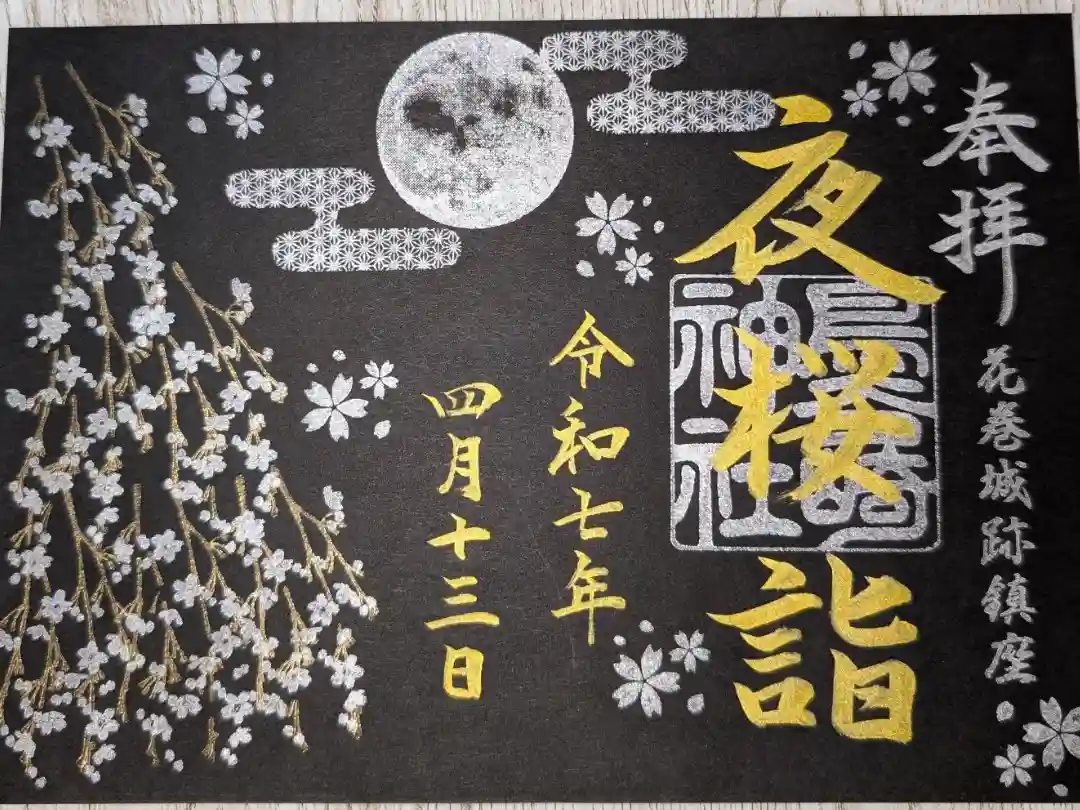 奉拝
花巻城跡鎮座
夜桜詣
鳥谷崎
神社
令和七年
四月十三日